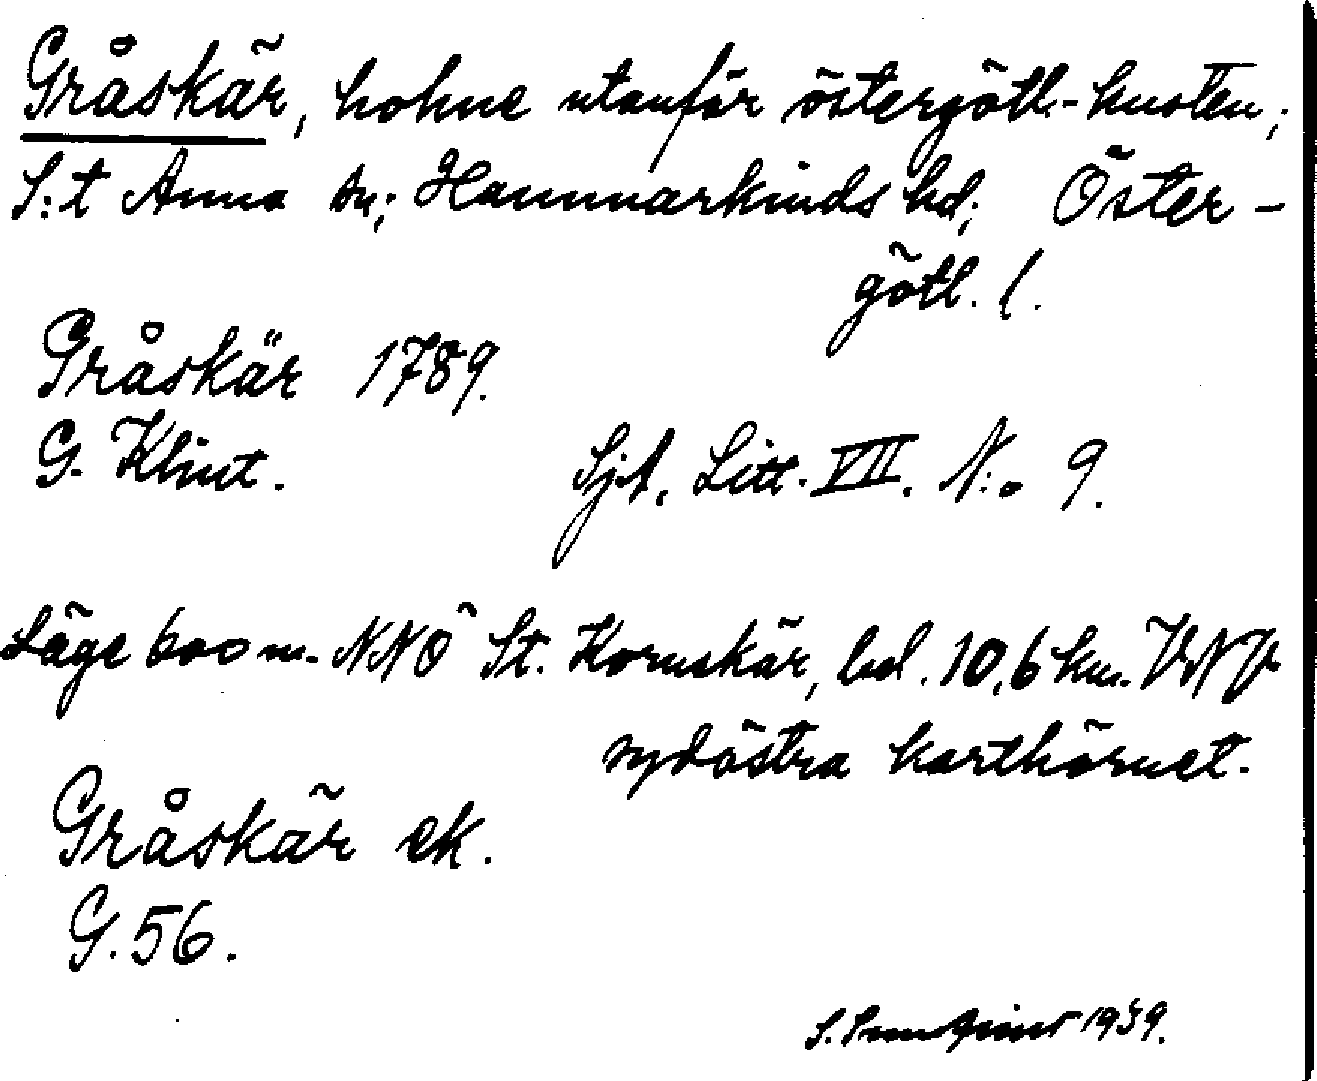 Gråskär, holme utanför östergötl.-kusten;
S:t Anna sn; Hammarkinds hd; Öster-
götl. l.
Gråskär 1789.
G. Klint. Sjk. Litt. VII. N:o 9.
Läge 600 m. NNO St. Kornskär, bel. 10,6 km. VNV
sydöstra karthörnet.
Gråskär ek.
G. 56.
S. 1939.